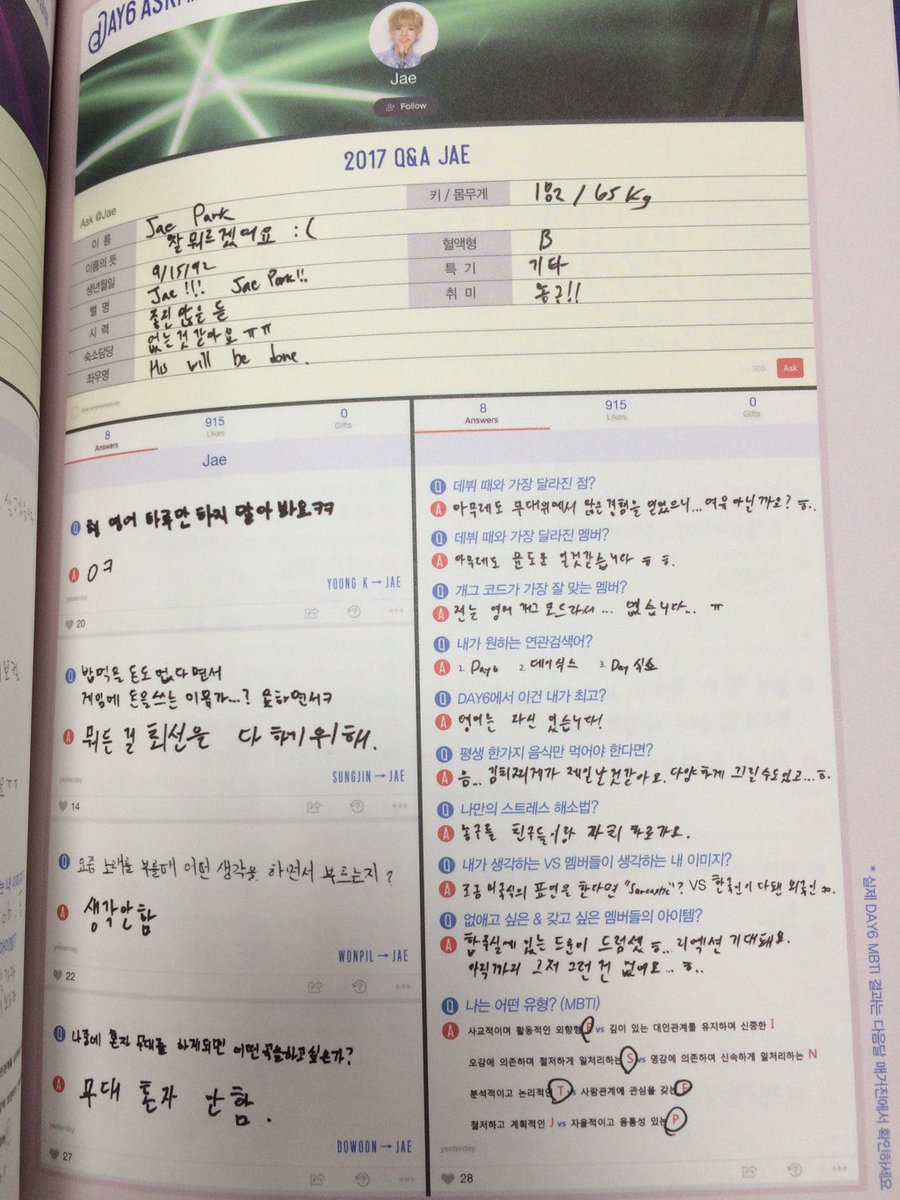 DAY6
Jae
Follow
2017 Q&A JAE
Ask @Jae
이 름 Jae Park
이름의 뜻 잘 뭐르겠어요 :(
생년월일 9/15/92
별 명 Jae!!! Jae Park!!
시 력 좋진 않을 듯
숙소담당 없는것 같아요 ㅠㅠ
좌우명 His will be done.
키 / 몸무게 182 / 65 kg
혈액형 B
특 기 기타
취 미 농구!!
300 Ask
8 915 0
Answers Likes Gifts
Jae
Q 형 영어 하루만 하지 말아 봐요ㅋㅋ
A ㅇㅋ
YOUNG K → JAE
yesterday
20
Q 밥먹을 돈도 없다면서
게임에 돈을 쓰는 이유가...? 굶하면서ㅋ
A 뭐든 걸 최선을 다 하기 위해.
SUNGJIN → JAE
yesterday
14
Q 요즘 노래를 부를때 어떤 생각을 하면서 부르는지?
A 생각안함
WONPIL → JAE
yesterday
22
Q 나중에 혼자 무대를 하게되면 어떤곡을하고싶은가?
A 무대 혼자 난 함.
DOWOON → JAE
yesterday
27
8 915 0
Answers Likes Gifts
Q 데뷔 때와 가장 달라진 점?
A 아무레도 무대위에서 많은 경험을 얻었으니... 여유 아닐까요? ㅎ..
Q 데뷔 때와 가장 달라진 멤버?
A 아무레도 윤도운 일것같습니다 ㅎㅎ.
Q 개그 코드가 가장 잘 맞는 멤버?
A 전는 영어 개그 코드라서... 없습니다.. ㅠ
Q 내가 원하는 연관검색어?
A 1. Day6 2. 데이식스 3. Day 식스
Q DAY6에서 이건 내가 최고?
A 영어는 자신 있습니다!
Q 평생 한가지 음식만 먹어야 한다면?
A 음... 김치찌개가 제일 난것같아요. 다양하게 끄릴수도있고...ㅎ.
Q 나만의 스트레스 해소법?
A 농구를 친구들이랑 하러가요.
Q 내가 생각하는 VS 멤버들이 생각하는 내 이미지?
A 조금 미국식의 표현을 한다면 "Sarcastic"? VS 한국인이 다됀 외국인
Q 없애고 싶은 & 갖고 싶은 멤버들의 아이템?
A 합주실에 있는 드운이 드럼셋 ㅎ.. 리엑션 기대돼요.
아직까지 그저 그런 건 없어요 .. ㅎ..
Q 나는 어떤 유형? (MBTI)
A 사교적이며 활동적인 외향형 E vs 깊이 있는 대인관계를 유지하며 신중한 I
오감에 의존하며 철저하게 일처리하는 S vs 영감에 의존하며 신속하게 일처리하는 N
분석적이고 논리적인 T vs 사람관계에 관심을 갖는 F
철저하고 계획적인 J vs 자율적이고 융통성 있는 P
yesterday
28
* 실제 DAY6 MBTI 결과는 다음달 매거진에서 확인하세요